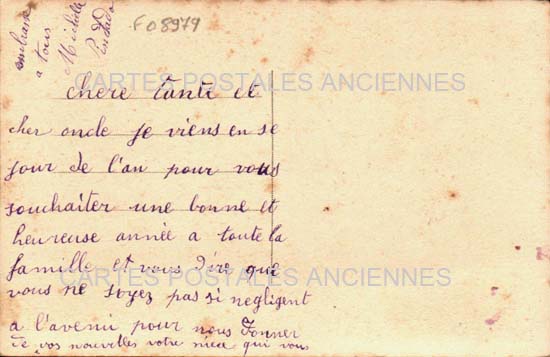 embrasse
a tous
Michèle
F08979
CARTES POSTALES ANCIENNES
chere tante et
cher oncle je viens en se
jour de l'an pour vous
souchaiter une bonne et
heureuse année a toute la
famille et vous dire que
CARTES POSTALES ANCIENNES
vous ne soyez pas si negligent
a l'aveni pour nous donner
de vos nouvelles votre niece qui vous